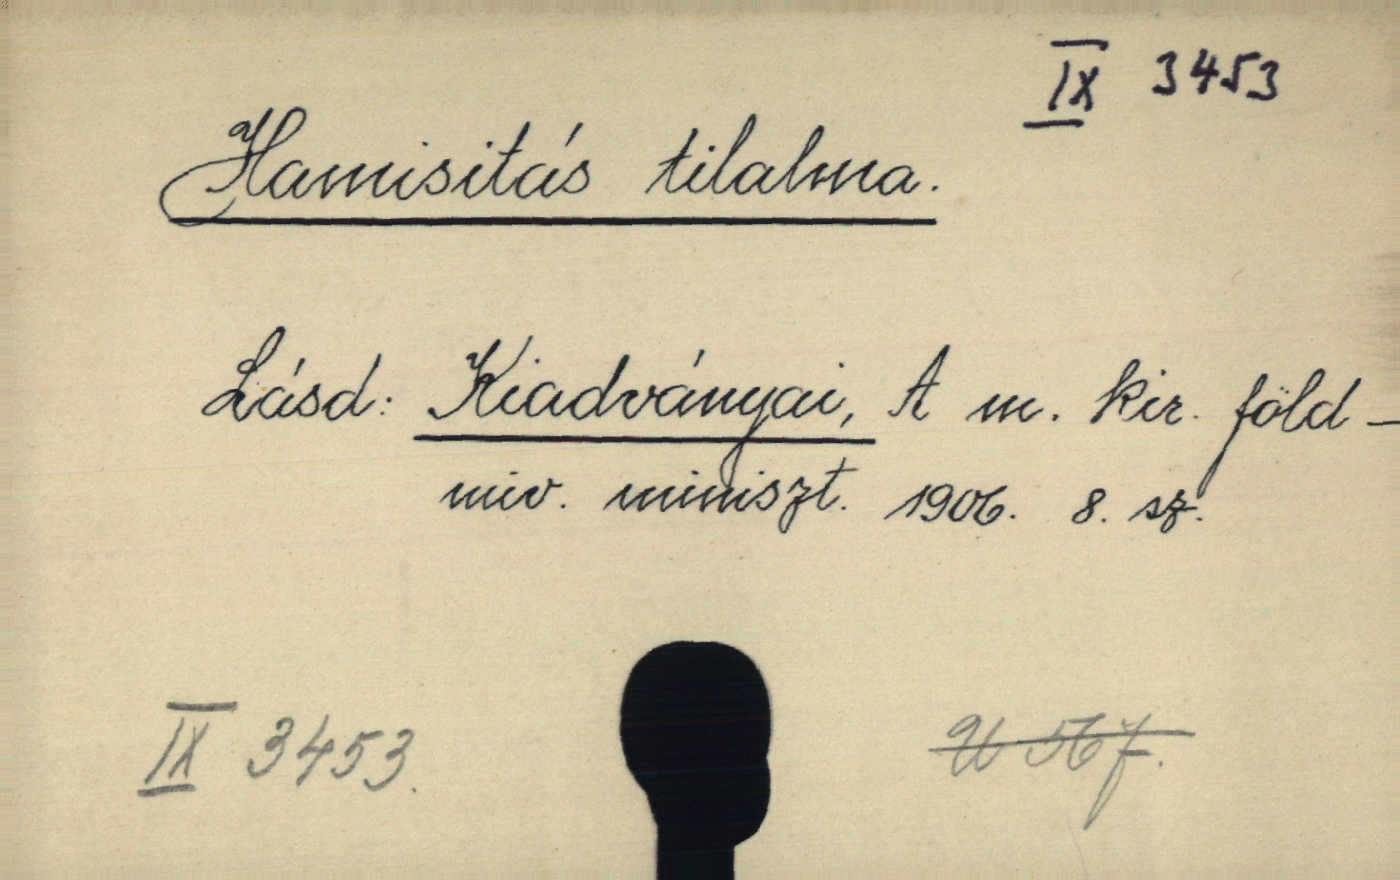 IX 3453
Hamisitás tilalma.
Lásd: Kiadványai, A m. kir. föld-
miv. miniszt. 1906. 8. sz.
IX 3453.
U 567.